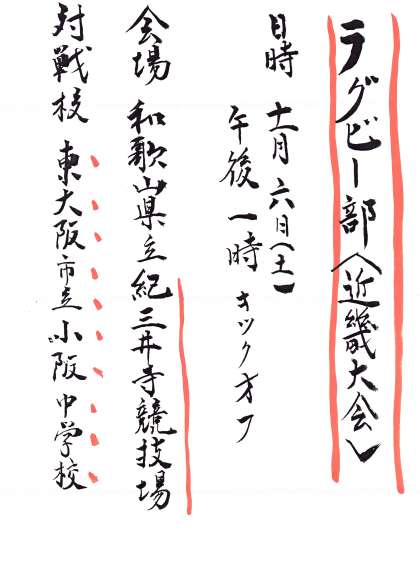 ラグビー部（近畿大会）
日時 十一月六日（土）
午後一時 キックオフ
会場 和歌山県立紀三井寺競技場
対戦校 東大阪市立小阪中学校